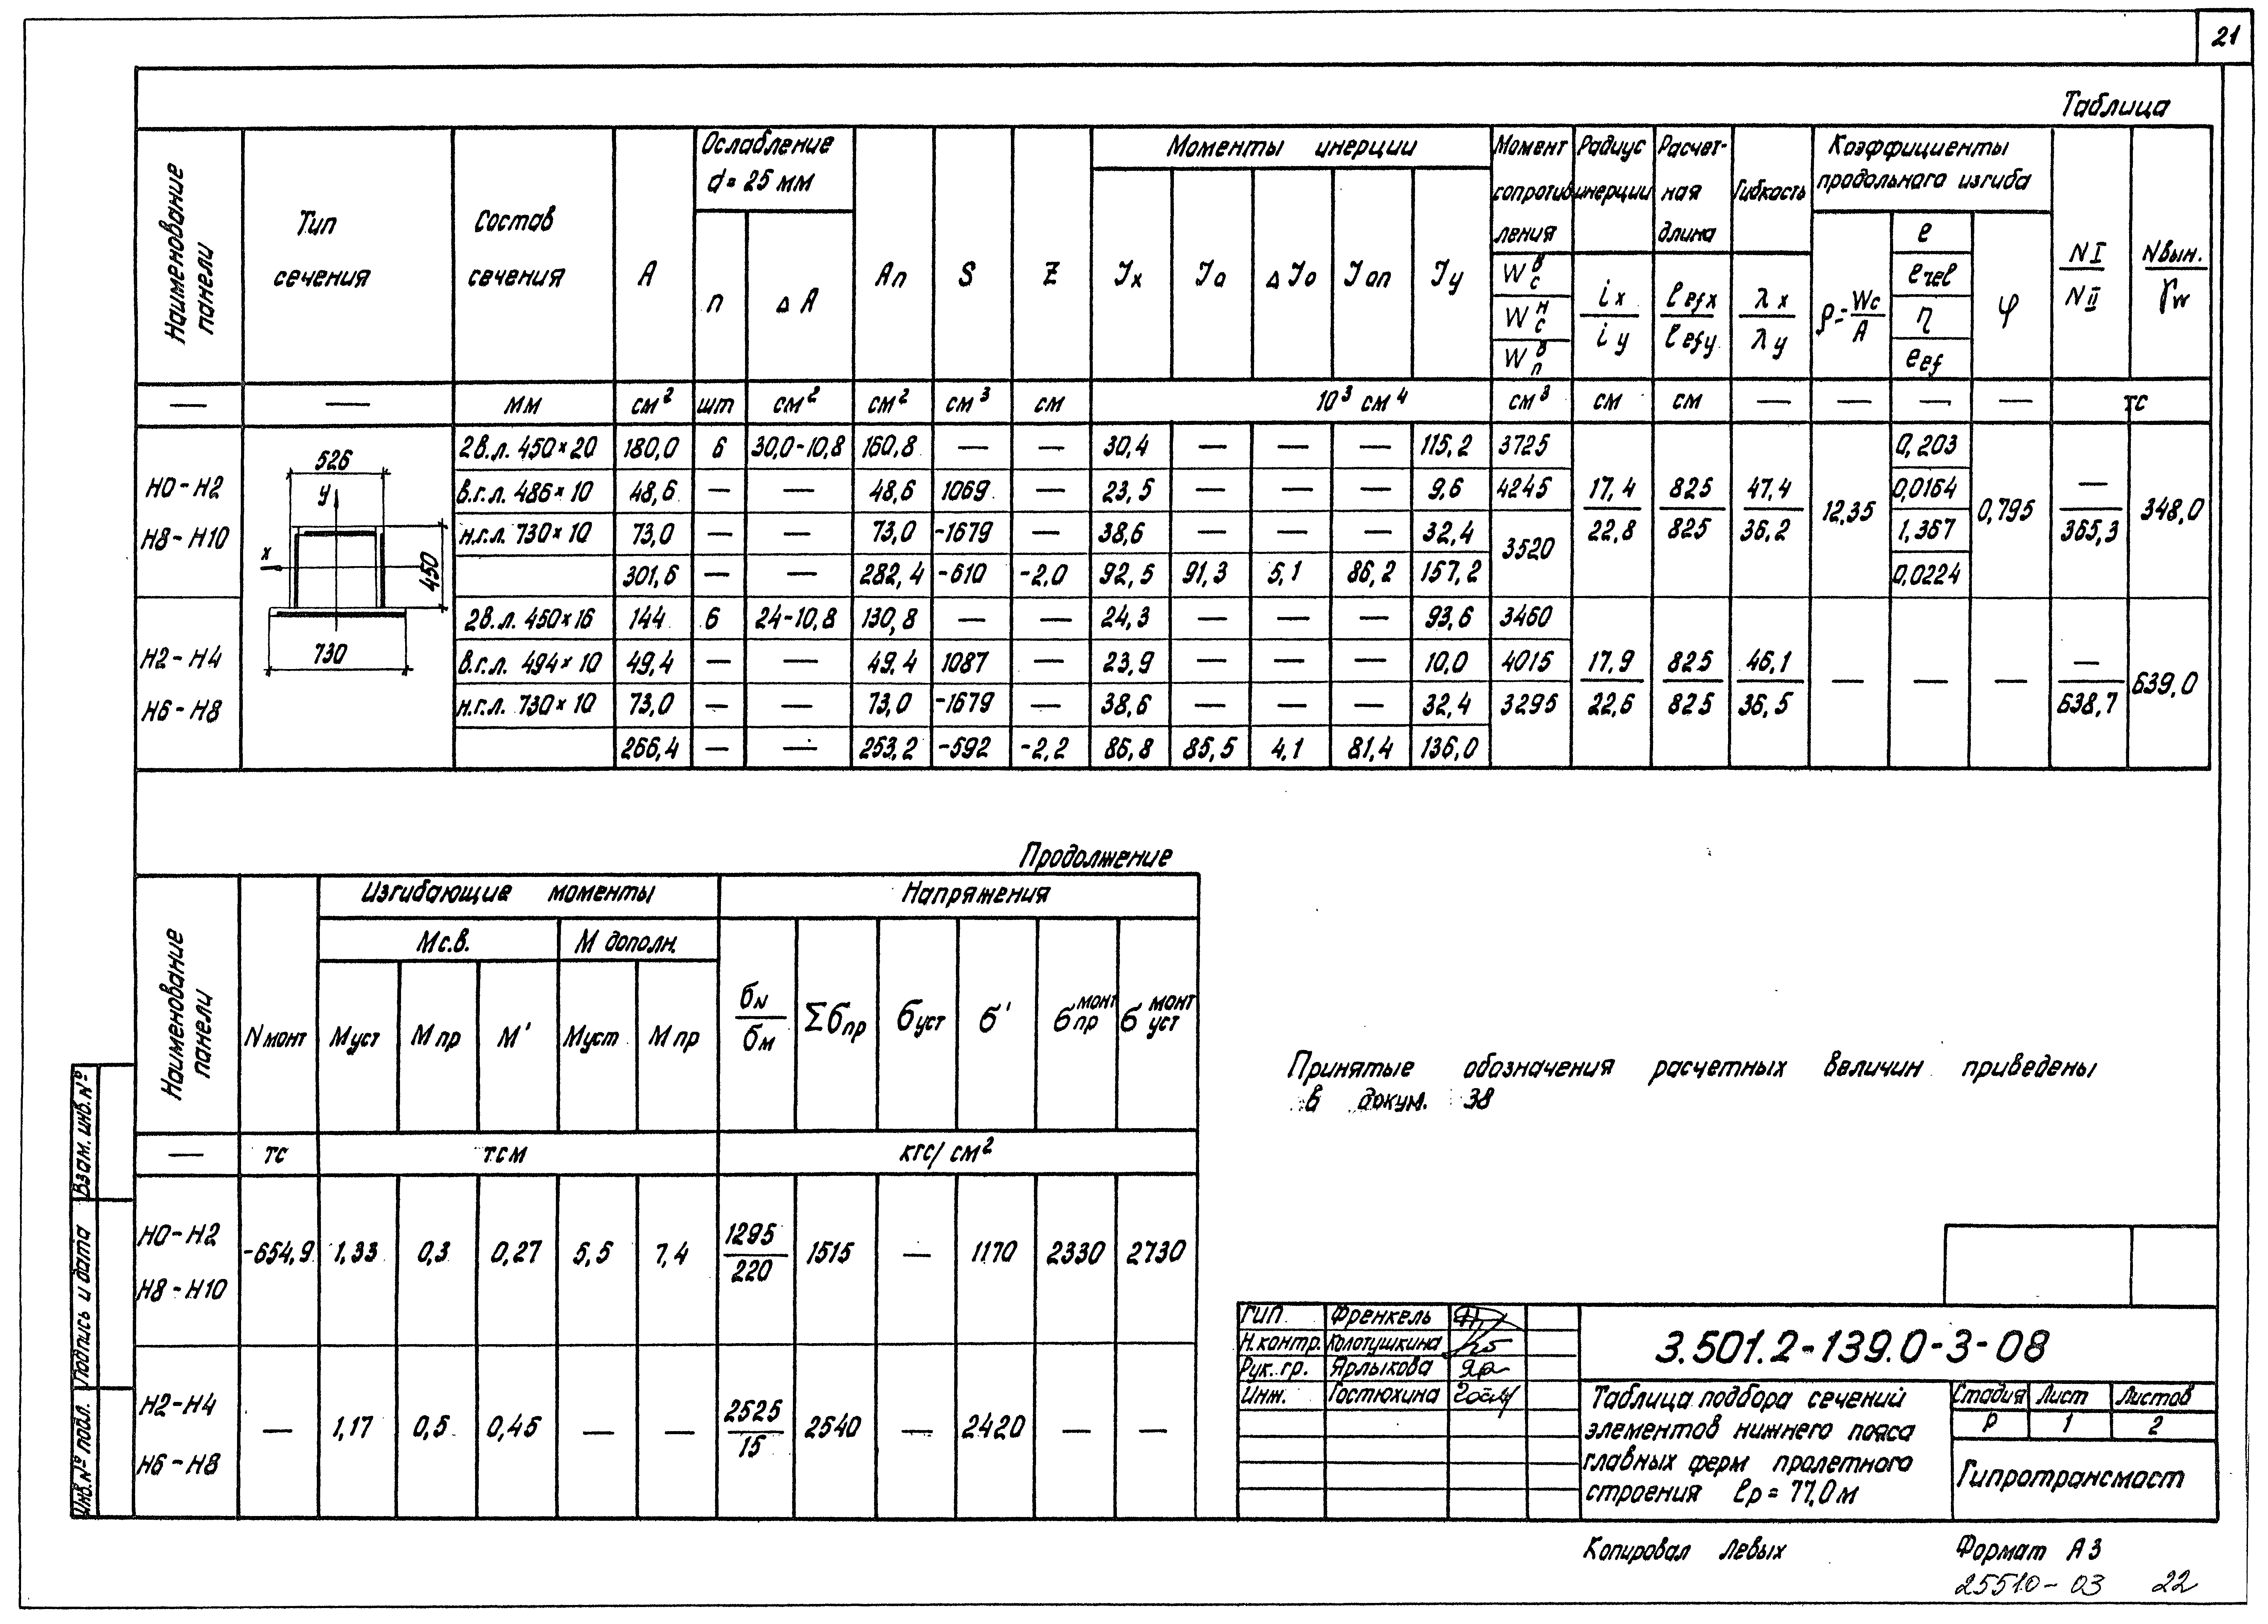 21
Таблица
Наименование панели
Тип сечения
Состав сечения
A
Ослабление d = 25 мм
n
Δ A
Aп
S
Z
Моменты инерции
Jx
Jo
Δ Jo
Jоп
Jy
Момент сопротивления
W в с
W н с
W в п
Радиус инерции
ix
iy
Расчетная длина
l efx
l efy
Гибкость
λ x
λ y
Коэффициенты продольного изгиба
ρ = Wc / A
e
e rel
η
e ef
φ
N I
N II
N вын.
γ w
— — мм см² шт см² см² см³ см 10³ см⁴ см³ см см — — — — тс
Н0 - Н2
Н8 - Н10
2в.л. 450×20 180,0 6 30,0-10,8 160,8 — — 30,4 — — — 115,2 3725
в.г.л. 486×10 48,6 — — 48,6 1069 — 23,5 — — — 9,6 4245
н.г.л. 730×10 73,0 — — 73,0 -1679 — 38,6 — — — 32,4 3520
301,6 — — 282,4 -610 -2,0 92,5 91,3 5,1 86,2 157,2
17,4 825 47,4
22,8 825 36,2
12,35
0,203
0,0164
1,367
0,0224
0,795
—
365,3
348,0
526
y
x
450
730
Н2 - Н4
Н6 - Н8
2в.л. 450×16 144 6 24-10,8 130,8 — — 24,3 — — — 93,6 3460
в.г.л. 494×10 49,4 — — 49,4 1087 — 23,9 — — — 10,0 4015
н.г.л. 730×10 73,0 — — 73,0 -1679 — 38,6 — — — 32,4 3295
266,4 — — 253,2 -592 -2,2 86,8 85,5 4,1 81,4 136,0
17,9 825 46,1
22,6 825 36,5
— — —
—
638,7
639,0
Продолжение
Наименование панели
N монт
Изгибающие моменты
М с.в.
М дополн.
М уст
М пр
М'
М уст
М пр
Напряжения
σN
σM
Σσпр
σуст
σ'
σ монт пр
σ монт уст
— тс тсм кгс/см²
Н0 - Н2
Н8 - Н10
-654,9 1,33 0,3 0,27 5,5 7,4 1295 / 220 1515 — 1170 2330 2730
Н2 - Н4
Н6 - Н8
— 1,17 0,5 0,45 — — 2525 / 15 2540 — 2420 — —
Принятые обозначения расчетных величин приведены
в докум. 38
Взам. инв. №
Подпись и дата
Инв. № подл.
ГИП Френкель
Н.контр. Колотушкина
Рук. гр. Ярлыкова
Инж. Гостюхина
3.501.2-139.0-3-08
Таблица подбора сечений
элементов нижнего пояса
главных ферм пролетного
строения lр = 77,0 м
Стадия Лист Листов
Р 1 2
Гипротрансмост
Копировал Левых
Формат А3
25510-03 22